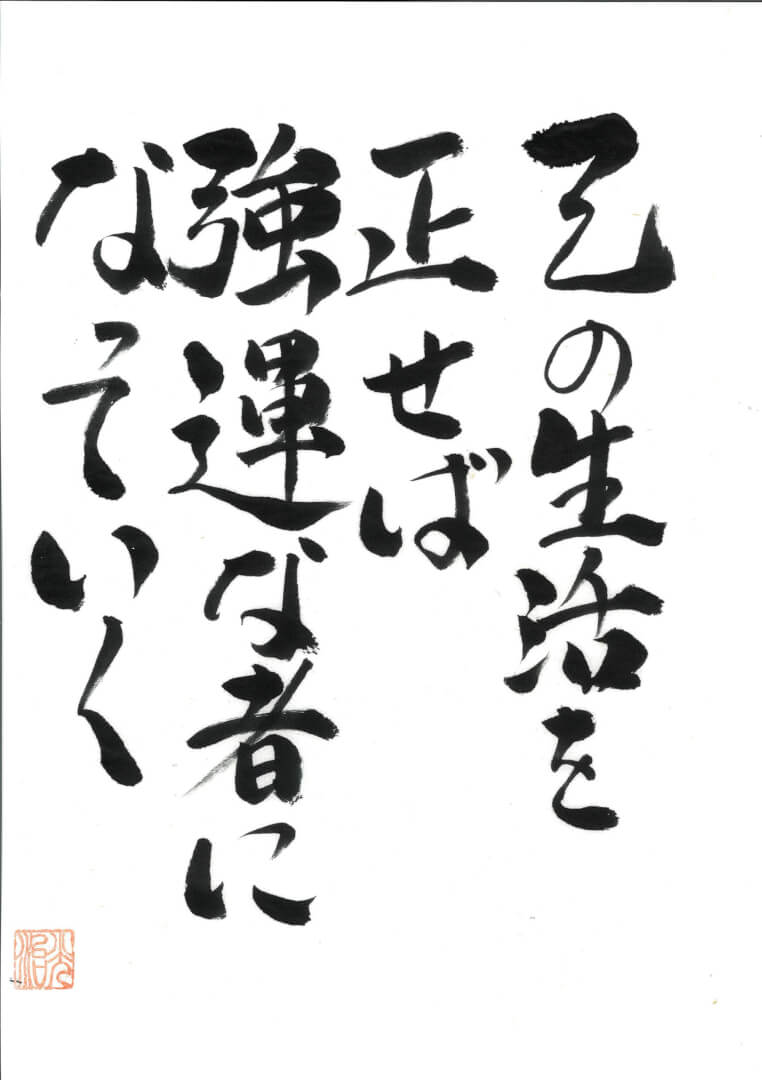 己の生活を
正せば
強運な者に
なっていく